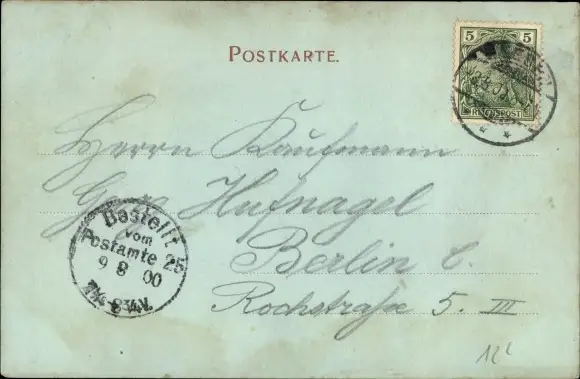 POSTKARTE.
5 5
REICHSPOST
Herrn Kaufmann
Hufnagel
Berlin C.
Rochstraße 5. III
Bestellt
vom
Postamte 25
9 8 00